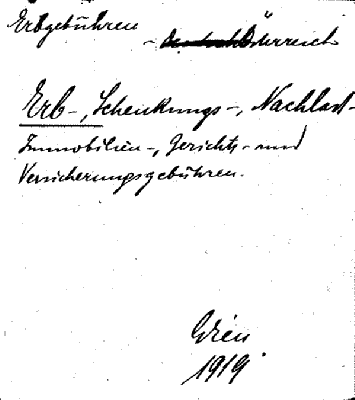 Erbgebühren
- Deutsch Österreich
Erb-, Schenkungs-, Nachlaß-
Immobilien-, Gerichts- und
Versicherungsgebühren.
Wien
1919